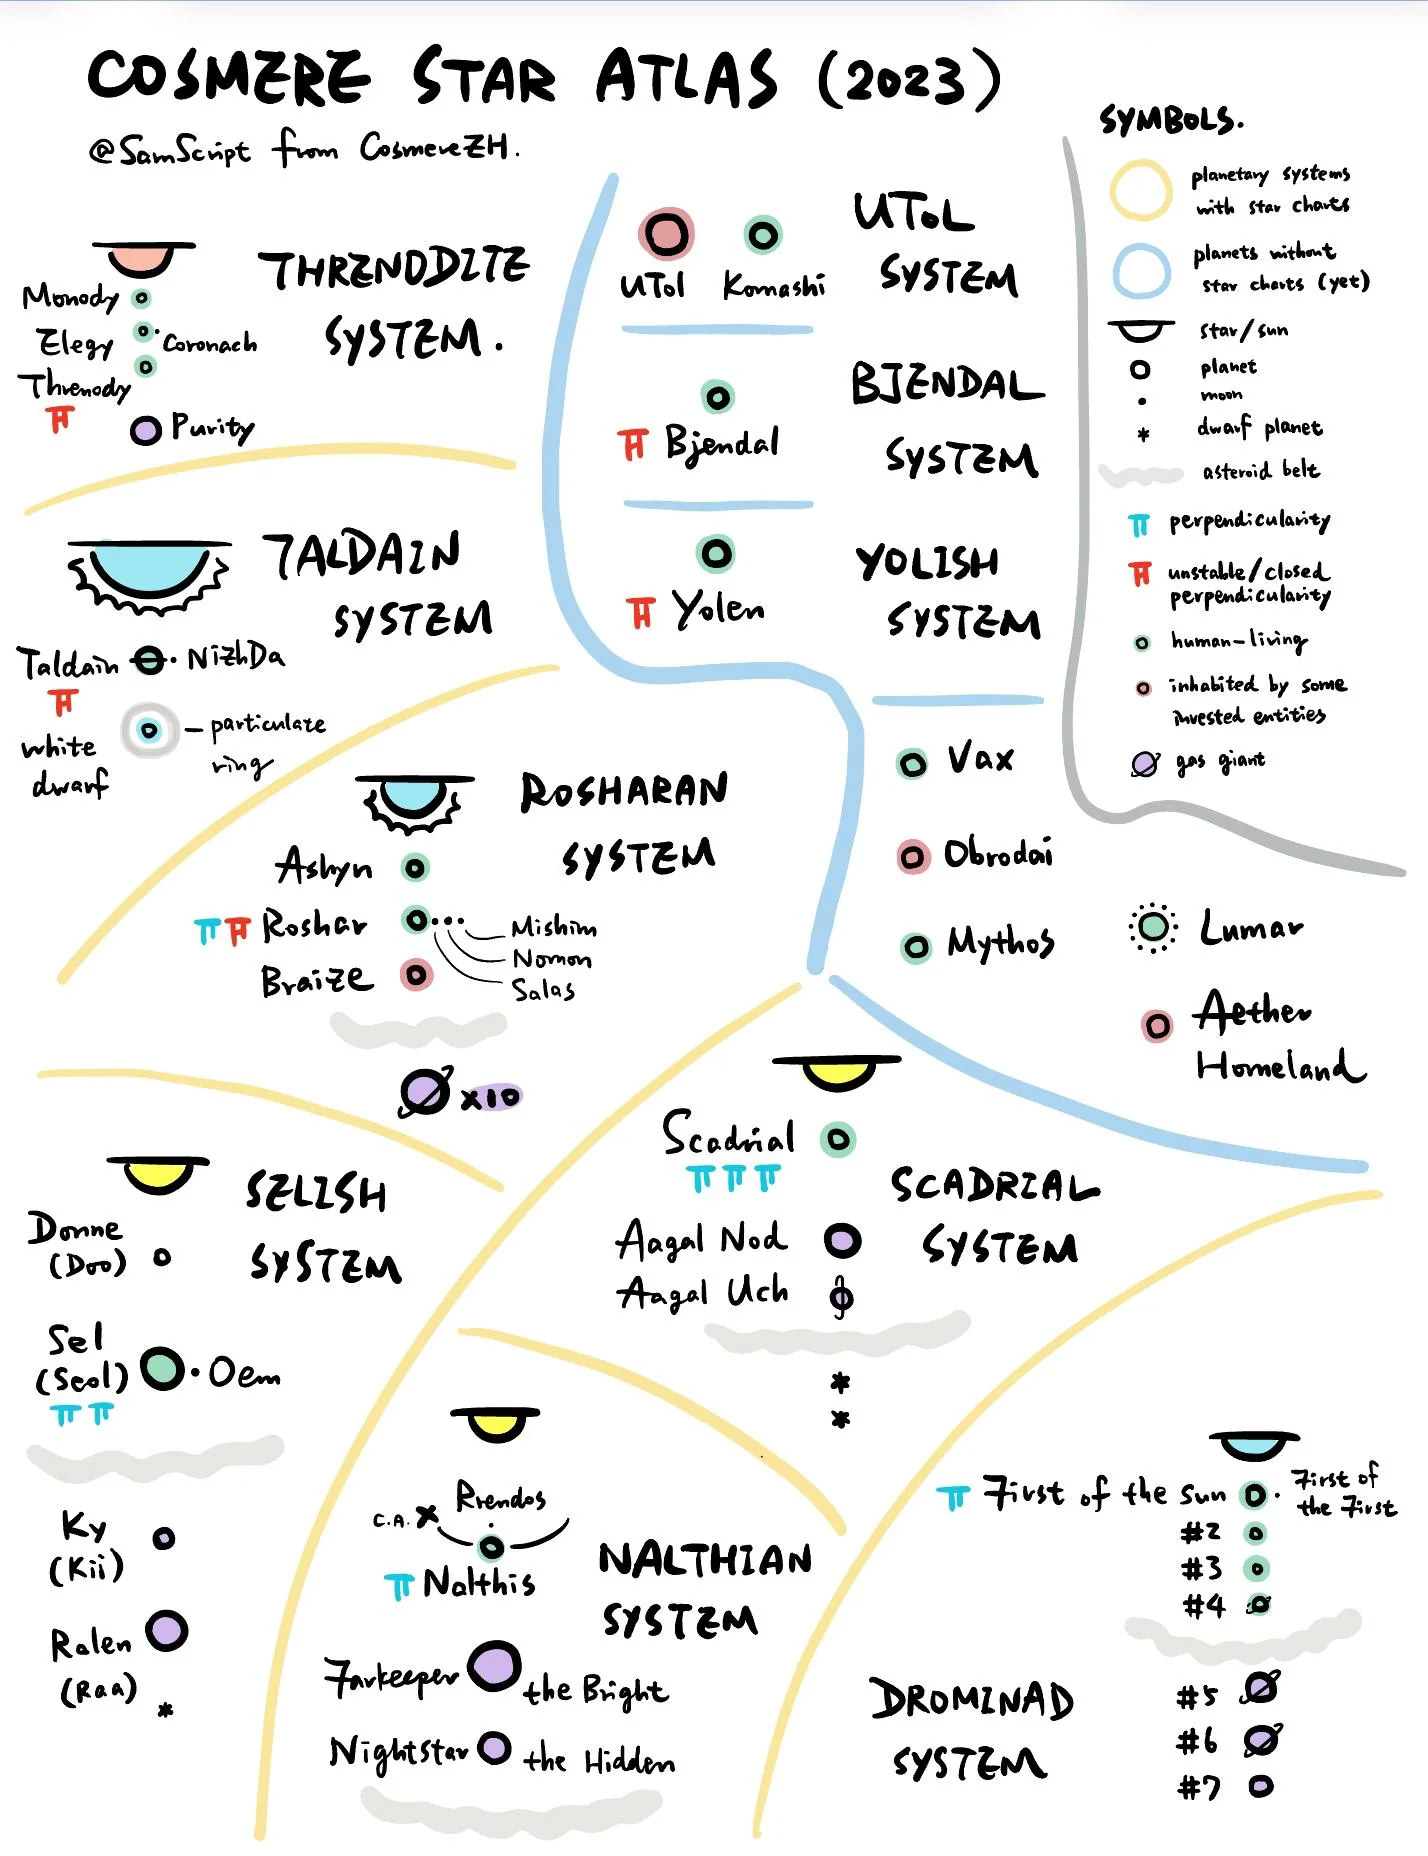 COSMERE STAR ATLAS (2023)
@SamScript from CosmereZH.
SYMBOLS.
planetary systems
with star charts
planets without
star charts (yet)
star/sun
planet
moon
dwarf planet
asteroid belt
perpendicularity
unstable/closed
perpendicularity
human-living
inhabited by some
invested entities
gas giant
THRENODITE
SYSTEM.
Monody
Elegy
Coronach
Threnody
Purity
TALDAIN
SYSTEM
Taldain
NizhDa
white
dwarf
particulate
ring
UTOL
SYSTEM
UTol
Komashi
BJENDAL
SYSTEM
Bjendal
YOLISH
SYSTEM
Yolen
Vax
Obrodai
Mythos
Lumar
Aether
Homeland
ROSHARAN
SYSTEM
Ashyn
Roshar
Mishim
Nomon
Salas
Braize
x10
SELISH
SYSTEM
Donne
(Doo)
Sel
(Seol)
Oem
Ky
(Kii)
Ralen
(Raa)
SCADRIAL
SYSTEM
Scadrial
Aagal Nod
Aagal Uch
NALTHIAN
SYSTEM
Rrendos
C.A.
Nalthis
Farkeeper
the Bright
Nightstar
the Hidden
DROMINAD
SYSTEM
First of the Sun
First of
the First
#2
#3
#4
#5
#6
#7